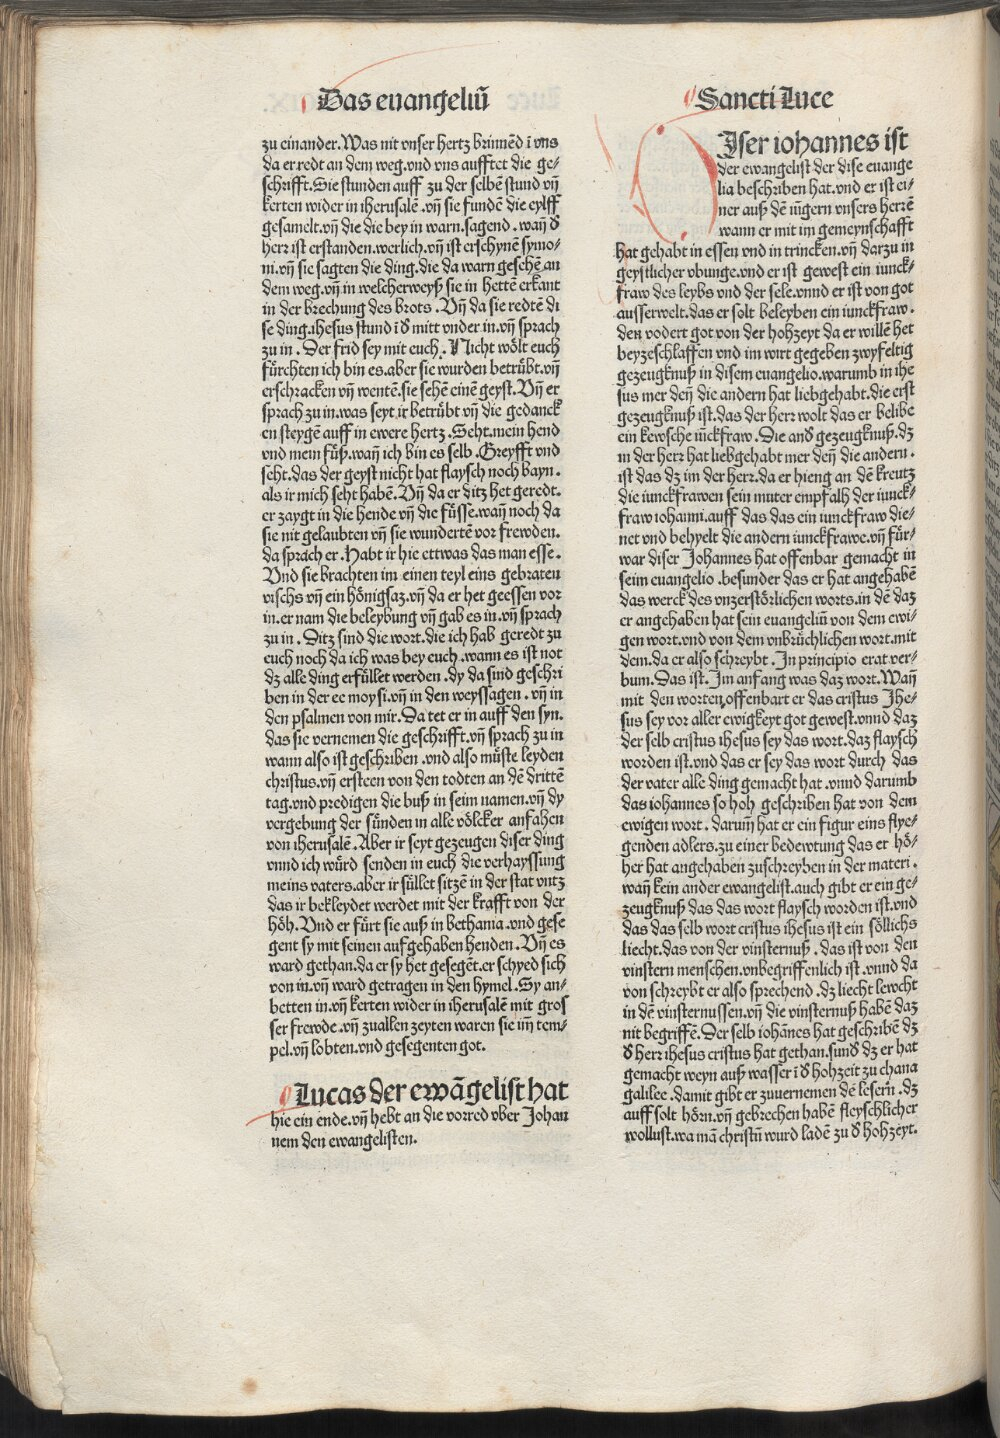 Das euangeliū
zu einander. Was nit vnser hertz brinnēd ī vns
da er redt an dem weg. vnd vns aufftet die ge⸗
schrifft. Sie stunden auff zu der selbē stund vn̄
kerten wider in iherusalē. vn̄ sie fundē die eylff
gesamelt. vn̄ die die bey in warn. sagend. wan̄ d̄
herr ist erstanden. werlich. vn̄ ist erschynē symo⸗
ni. vn̄ sie sagten die ding. die da warn geschē an
dem weg. vn̄ in welcherweyß sie in hettē erkant
in der brechung des brots. Vn̄ da sie redtē di
se ding. ihesus stund ī d̄ mitt vnder in. vn̄ sprach
zu in. Der frid sey mit euch. Nicht wölt euch
fürchten ich bin es. aber sie wurden betrübt. vn̄
erschracken vn̄ wentē. sie sehē einē geyst. Vn̄ er
sprach zu in. was seyt ir betrübt vn̄ die gedanck
en steygē auff in ewere hertz. Seht. mein hend
vnd mein füß. wan̄ ich bin es selb. Greyfft vnd
seht. das der geyst nicht hat flaysch noch bayn.
als ir mich seht habē. Vn̄ da er ditz het geredt.
er zaygt in die hende vn̄ die füsse. wan̄ noch da
sie nit gelaubten vn̄ sie wundertē vor frewden.
da sprach er. Habt ir hie ettwas das man esse.
Vnd sie brachten im einen teyl eins gebraten
vischs vn̄ ein hönigsaz. vn̄ da er het geessen vor
in. er nam die beleybung vn̄ gab es in. vn̄ sprach
zu in. Ditz sind die wort. die ich hab geredt zu
euch noch da ich was bey euch. wann es ist not
dz alle ding erfüllet werden. dy da sind geschri
ben in der ee moysi. vn̄ in den weyssagen. vn̄ in
den psalmen von mir. Da tet er in auff den syn.
das sie vernemen die geschrifft. vn̄ sprach zu in
wann also ist geschriben. vnd also müste leyden
christus. vn̄ ersteen von den todten an dē drittē
tag. vnd predigen die buß in seim namen. vn̄ dy
vergebung der sünden in alle völcker anfahen
von iherusalē. Aber ir seyt gezeugen diser ding
vnnd ich würd senden in euch die verhayssung
meins vaters. aber ir süllet sitzē in der stat vntz
das ir bekleydet werdet mit der krafft von der
höh. Vnd er fürt sie auß in bethania. vnd gese
gent sy mit seinen aufgehaben henden. Vn̄ es
ward gethan. da er sy het gesegēt. er schyed sich
von in. vn̄ ward getragen in den hymel. Sy an⸗
betten in. vn̄ kerten wider in iherusalē mit gros
ser frewde. vn̄ zuallen zeyten waren sie im̄ tem⸗
pel. vn̄ lobten. vnd gesegenten got.
Lucas der ewāgelist hat
hie ein ende. vn̄ hebt an die vorred vber Johan
nem den ewangelisten.
Sancti Luce
Iser iohannes ist
der ewangelist der dise euange
lia beschriben hat. vnd er ist ei⸗
ner auß dē iūgern vnsers herrē
wann er mit im gemeynschafft
hat gehabt in essen vnd in trincken. vn̄ darzu in
geystlicher vbunge. vnd er ist gewest ein iunck⸗
fraw des leybs vnd der sele. vnnd er ist von got
ausserwelt. das er solt beleyben ein iunckfraw.
den vodert got von der hohzeyt da er willē het
beyzeschlaffen vnd im wirt gegeben zwyfeltig
gezeugknuß in disem euangelio. warumb in ihe
sus mer den̄ die andern hat liebgehabt. die erst
gezeugknuß ist. das der herr wolt das er belibe
ein kewsche iūckfraw. Die and̄ gezeugknuß. dz
in der herr hat liebgehabt mer den̄ die andern.
ist das dz im der herr. da er hieng an dē kreutz
die iunckfrawen sein muter empfalh der iunck⸗
fraw iohanni. auff das das ein iunckfraw die⸗
net vnd behyelt die andern iunckfrawe. vn̄ für⸗
war diser Johannes hat offenbar gemacht in
seim euangelio. besunder das er hat angehabē
das werck des vnzerstörlichen worts. in dē daz
er angehaben hat sein euangeliū von dem ewi⸗
gen wort. vnd von dem vnbrüchlichen wort. mit
dem. da er also schreybt. In principio erat ver⸗
bum. Das ist. Im anfang was daz wort. Wan̄
mit den worten offenbart er das cristus Jhe⸗
sus sey vor aller ewigkeyt got gewest. vnnd daz
der selb cristus ihesus sey das wort. daz flaysch
worden ist. vnd das er sey das wort durch das
der vater alle ding gemacht hat. vnnd darumb
das iohannes so hoh geschriben hat von dem
ewigen wort. darum̄ hat er ein figur eins flye⸗
genden adlers. zu einer bedewtung das er hö⸗
her hat angehaben zuschreyben in der materi.
wan̄ kein ander ewangelist. auch gibt er ein ge⸗
zeugknuß das das wort flaysch worden ist. vnd
das das selb wort cristus ihesus ist ein söllichs
liecht. das von der vinsternuß. das ist von den
vinstern menschen. vnbegriffenlich ist. vnnd da
von schreybt er also sprechend. dz liecht lewcht
in dē vinsternussen. vn̄ die vinsternuß habē daz
nit begriffē. Der selb iohānes hat geschribē dz
d̄ herr ihesus cristus hat gethan. sund̄ dz er hat
gemacht weyn auß wasser ī d̄ hohzeit zu chana
galilee. damit gibt er zuuernemen dē lesern. dz
auff solt hörn. vn̄ gebrechen habē fleyschlicher
wollust. wa mā christū wurd ladē zu d̄ hohzeyt.